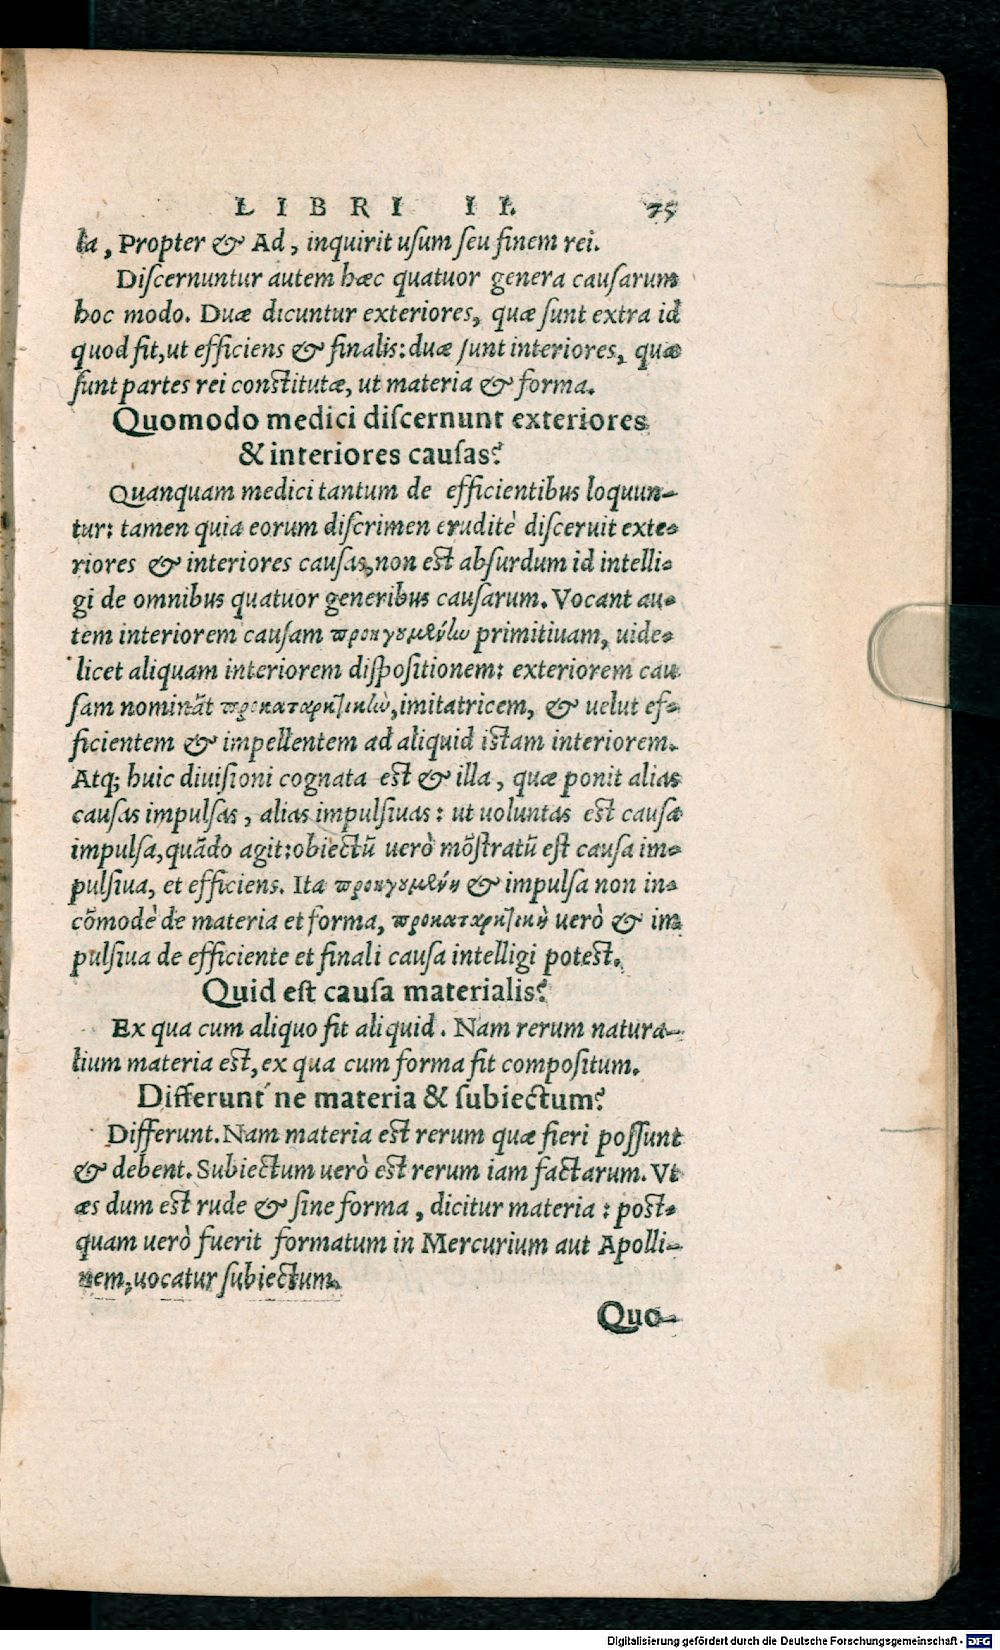 LIBRI II. 75
la, Propter & Ad, inquirit usum seu finem rei.
Discernuntur autem hæc quatuor genera causarum
hoc modo. Duæ dicuntur exteriores, quæ sunt extra id
quod fit, ut efficiens & finalis: duæ sunt interiores, quæ
sunt partes rei constitutæ, ut materia & forma.
Quomodo medici discernunt exteriores
& interiores causas?
Quanquam medici tantum de efficientibus loquun-
tur: tamen quia eorum discrimen eruditè disceruit exte-
riores & interiores causas, non est absurdum id intelli-
gi de omnibus quatuor generibus causarum. Vocant au-
tem interiorem causam προηγουμένην primitiuam, uide-
licet aliquam interiorem dispositionem: exteriorem cau
sam nominãt προκαταρκτικὴν, imitatricem, & uelut ef-
ficientem & impellentem ad aliquid istam interiorem.
Atq; huic diuisioni cognata est & illa, quæ ponit alias
causas impulsas, alias impulsiuas: ut uoluntas est causa
impulsa, quãdo agit: obiectũ uerò mõstratũ est causa im-
pulsiua, et efficiens. Ita προηγουμένη & impulsa non in-
cõmodè de materia et forma, προκαταρκτικὴ uerò & im
pulsiua de efficiente et finali causa intelligi potest.
Quid est causa materialis?
Ex qua cum aliquo fit aliquid. Nam rerum natura-
lium materia est, ex qua cum forma fit compositum.
Differunt ne materia & subiectum?
Differunt. Nam materia est rerum quæ fieri possunt
& debent. Subiectum uerò est rerum iam factarum. Vt
æs dum est rude & sine forma, dicitur materia: post-
quam uerò fuerit formatum in Mercurium aut Apolli-
nem, uocatur subiectum.
Quo-
Digitalisierung gefördert durch die Deutsche Forschungsgemeinschaft - DFG